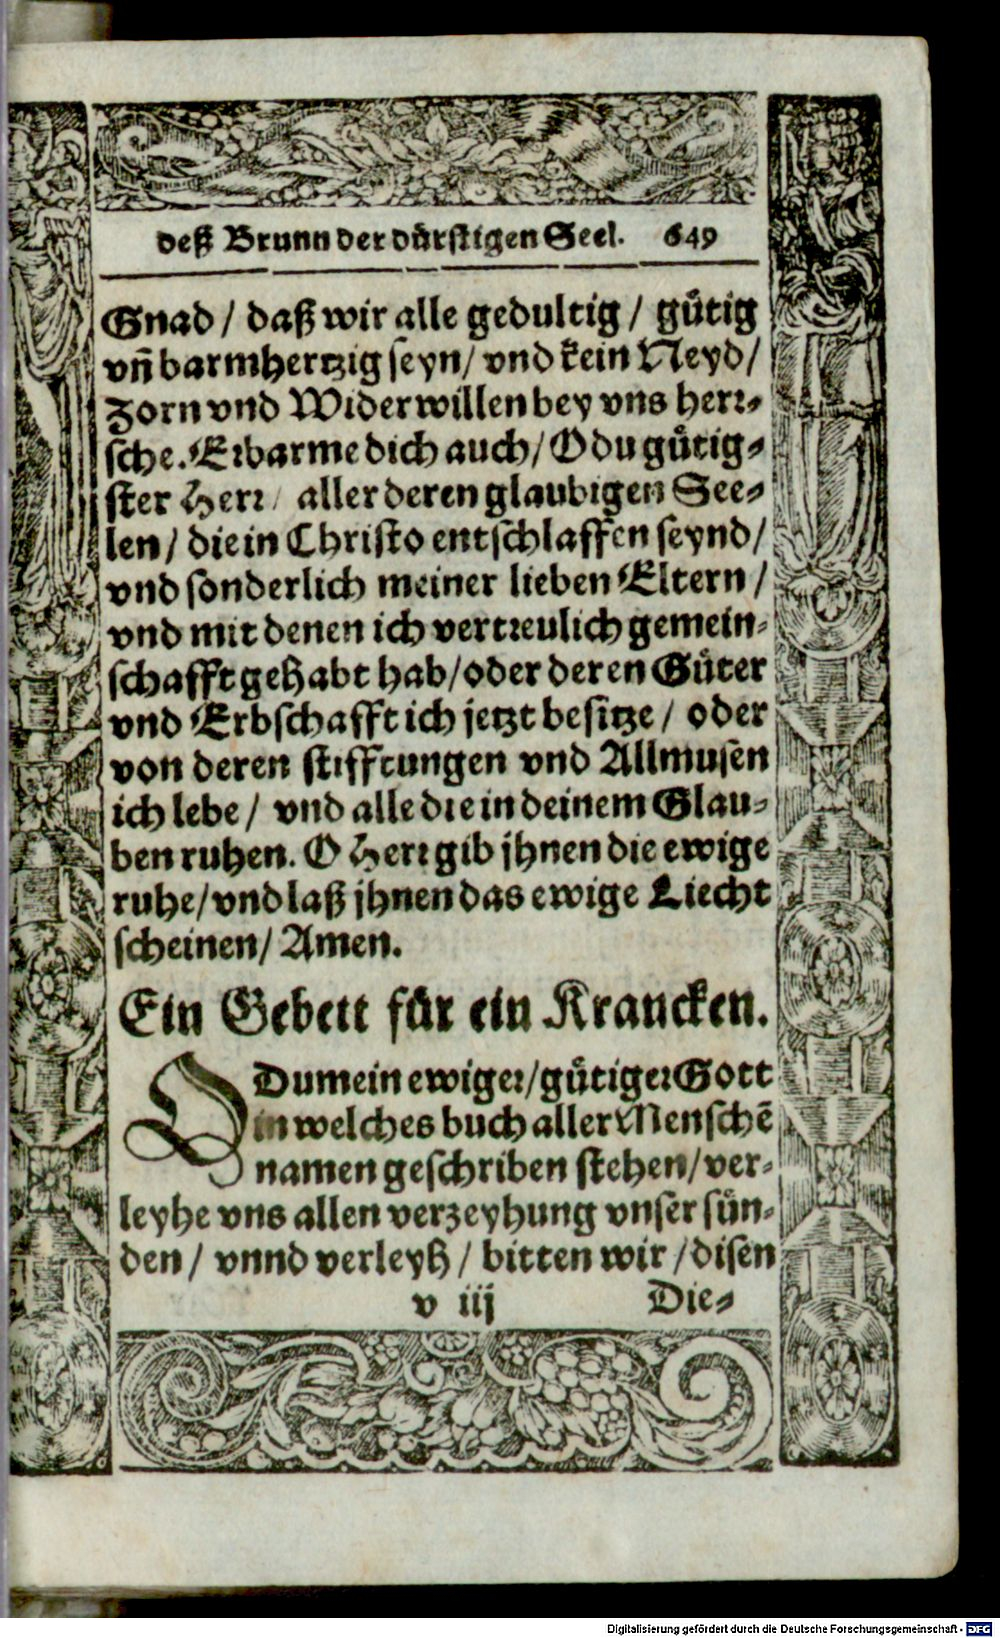 deß Brunn der dürstigen Seel. 649
Gnad / daß wir alle gedultig / guͤtig
vñ barmhertzig seyn / vnd kein Neyd /
Zorn vnd Widerwillen bey vns herr⸗
sche. Erbarme dich auch / O du guͤtig⸗
ster Herr / aller deren glaubigen See⸗
len / die in Christo entschlaffen seynd /
vnd sonderlich meiner lieben Eltern /
vnd mit denen ich vertreulich gemein⸗
schafft gehabt hab / oder deren Guͤter
vnd Erbschafft ich jetzt besitze / oder
von deren stifftungen vnd Allmusen
ich lebe / vnd alle die in deinem Glau⸗
ben ruhen. O Herr gib jhnen die ewige
ruhe / vnd laß jhnen das ewige Liecht
scheinen / Amen.
Ein Gebett fuͤr ein Krancken.
O Du mein ewiger / guͤtiger Gott
in welches buch aller Menschẽ
namen geschriben stehen / ver⸗
leyhe vns allen verzeyhung vnser suͤn⸗
den / vnnd verleyh / bitten wir / disen
v iij Die⸗
Digitalisierung gefördert durch die Deutsche Forschungsgemeinschaft - DFG